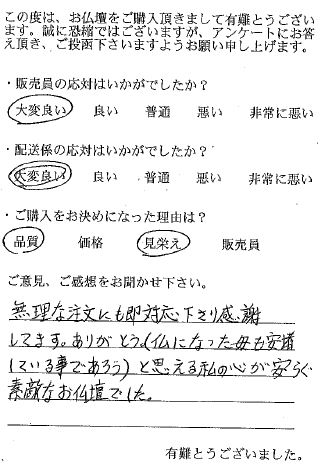 この度は、お仏壇をご購入頂きまして有難とうござい
ます。誠に恐縮ではございますが、アンケートにお答
え頂き、ご投函下さいますようお願い申し上げます。
・販売員の応対はいかがでしたか？
大変良い 良い 普通 悪い 非常に悪い
・配送係の応対はいかがでしたか？
大変良い 良い 普通 悪い 非常に悪い
・ご購入をお決めになった理由は？
品質 価格 見栄え 販売員
ご意見、ご感想をお聞かせ下さい。
無理な注文にも即対応下さり感謝
してます。ありがとう。(仏になった母も安堵
している事であろう)と思える私の心が安らぐ
素敵なお仏壇でした。
有難とうございました。